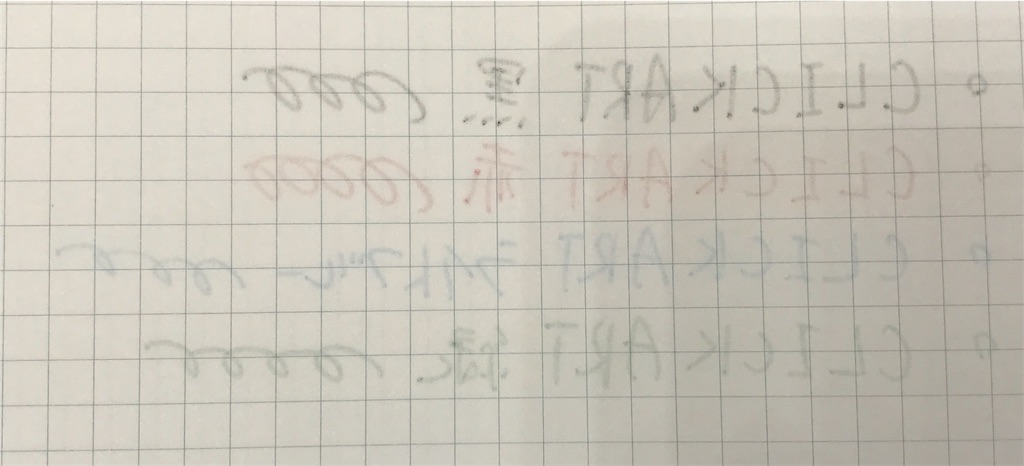 CLICK ART 黒
CLICK ART 赤
CLICK ART ライトブルー
CLICK ART 緑